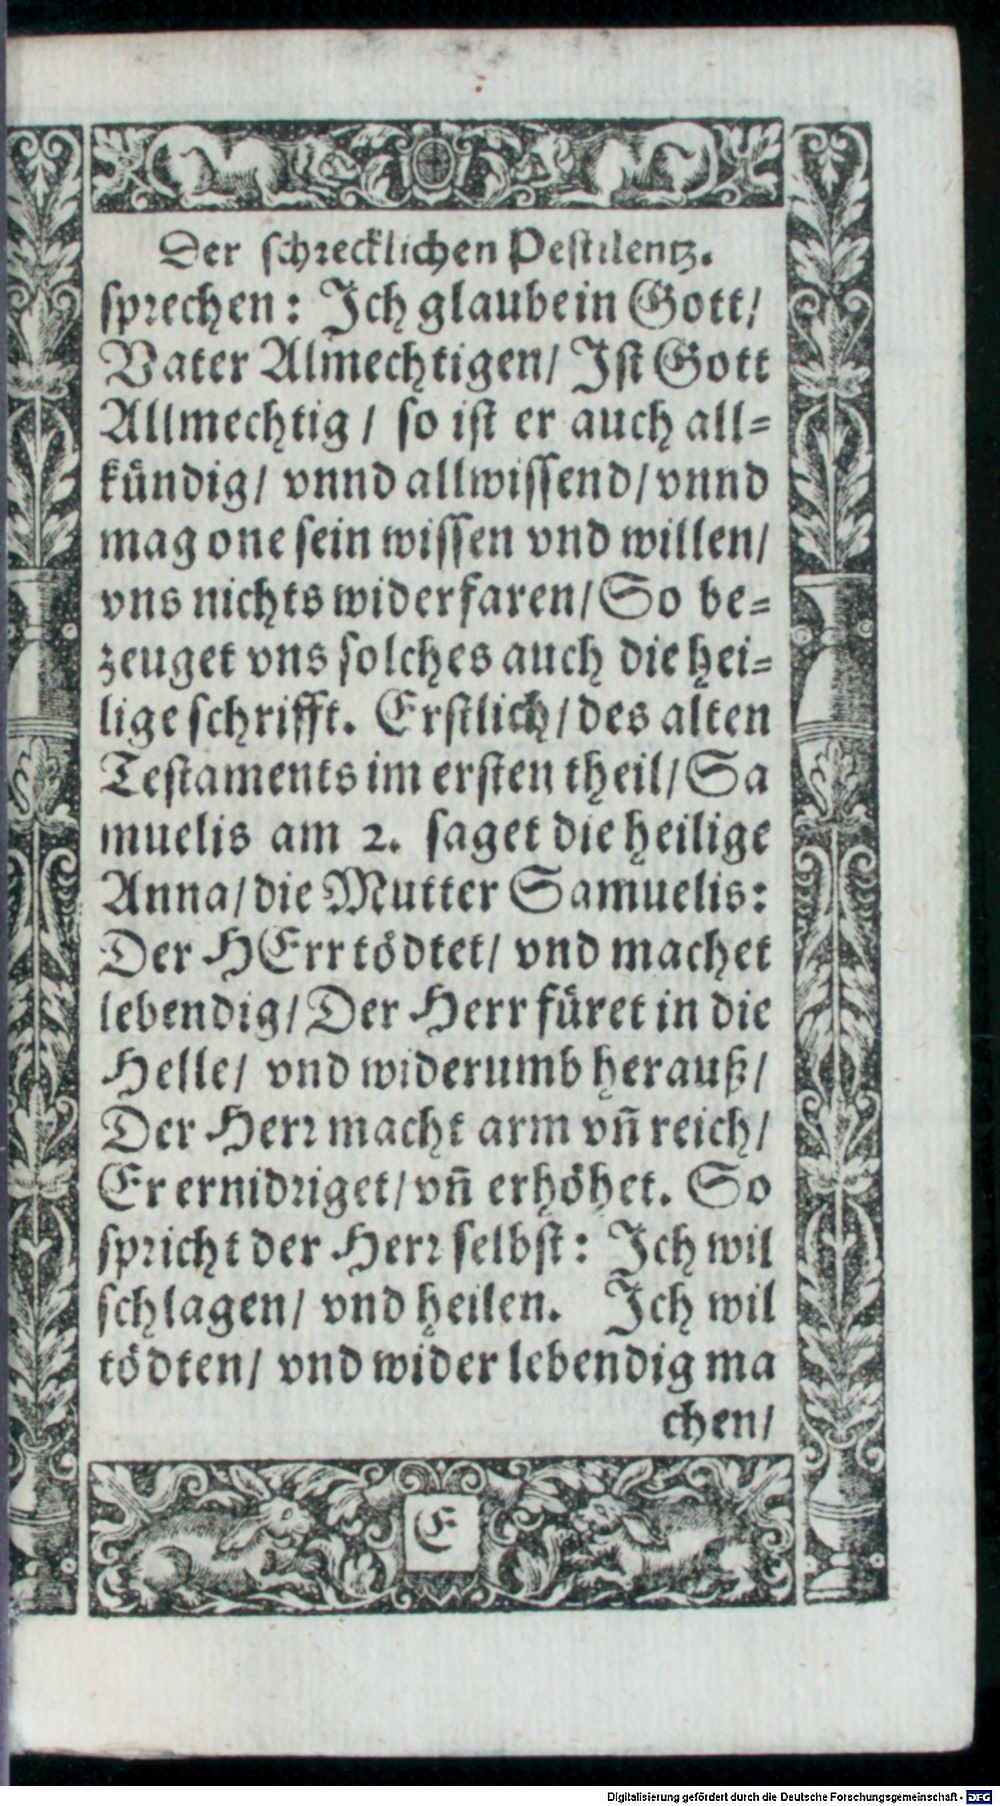 Der schrecklichen Pestilentz.
sprechen: Ich glaube in Gott/
Vater Almechtigen/ Ist Gott
Allmechtig/ so ist er auch all⸗
kündig/ vnnd allwissend/ vnnd
mag one sein wissen vnd willen/
vns nichts widerfaren/ So be⸗
zeuget vns solches auch die hei⸗
lige schrifft. Erstlich/ des alten
Testaments im ersten theil/ Sa
muelis am 2. saget die heilige
Anna/ die Mutter Samuelis:
Der HErr tödtet/ vnd machet
lebendig/ Der Herr füret in die
Helle/ vnd widerumb herauß/
Der Herr macht arm vn̄ reich/
Er ernidriget/ vn̄ erhöhet. So
spricht der Herr selbst: Ich wil
schlagen/ vnd heilen. Ich wil
tödten/ vnd wider lebendig ma
chen/
E
Digitalisierung gefördert durch die Deutsche Forschungsgemeinschaft - DFG